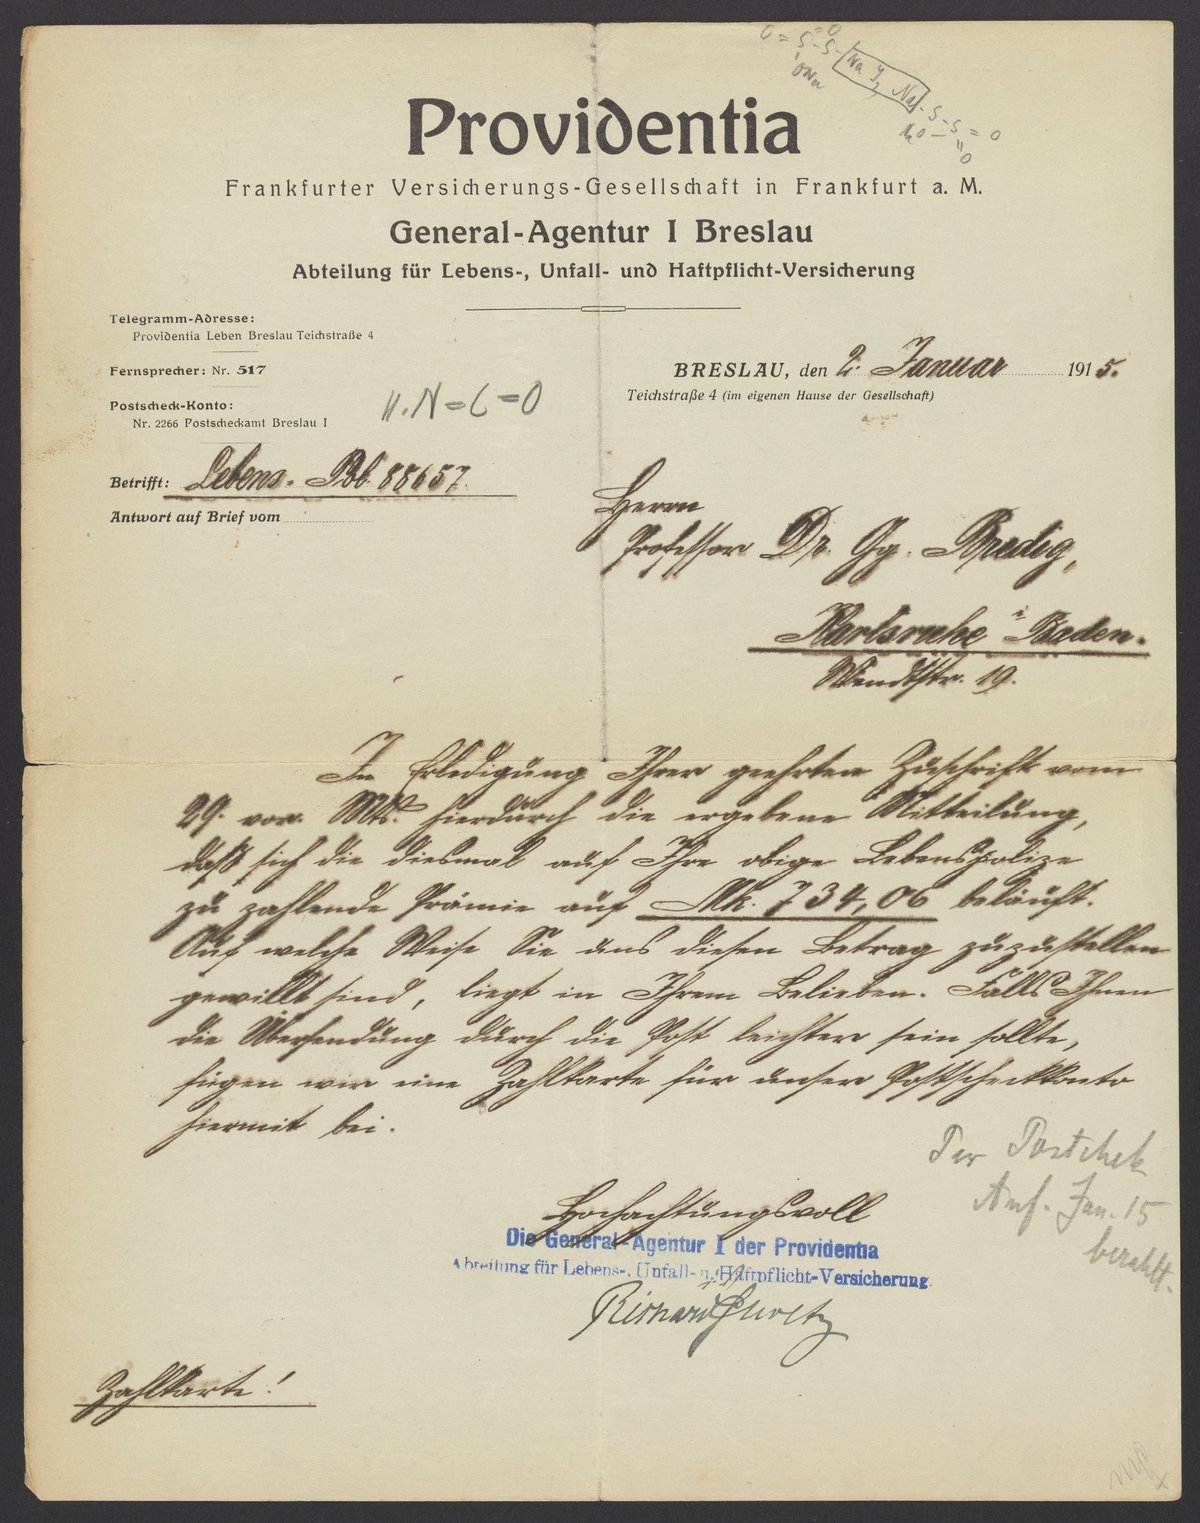 Providentia
Frankfurter Versicherungs-Gesellschaft in Frankfurt a. M.
General-Agentur I Breslau
Abteilung für Lebens-, Unfall- und Haftpflicht-Versicherung
Telegramm-Adresse:
Providentia Leben Breslau Teichstraße 4
Fernsprecher: Nr. 517
Postscheck-Konto:
Nr. 2266 Postscheckamt Breslau I
H.N=C=O
BRESLAU, den 2. Januar 1915.
Teichstraße 4 (im eigenen Hause der Gesellschaft)
Betrifft: Lebens-Pol. 88657.
Antwort auf Brief vom
Herrn
Professor Dr. Gg. Bredig,
Karlsruhe i Baden.
Wendtstr. 19.
In Erledigung Ihrer geehrten Zuschrift vom
29. vor. Mts. hierdurch die ergebene Mitteilung,
daß sich die diesmal auf Ihre obige Lebenspolize
zu zahlende Prämie auf Mk. 734,06 beläuft.
Auf welche Weise Sie uns diesen Betrag zuzustellen
gewillt sind, liegt in Ihrem Belieben. Falls Ihnen
die Übersendung durch die Post leichter sein sollte,
fügen wir eine Zahlkarte für unser Postscheckkonto
hiermit bei.
Per Postchek
Anf. Jan. 15
bezahlt.
Hochachtungsvoll
Die General-Agentur I der Providentia
Abteilung für Lebens-, Unfall- u. Haftpflicht-Versicherung
Richard
Zahlkarte!